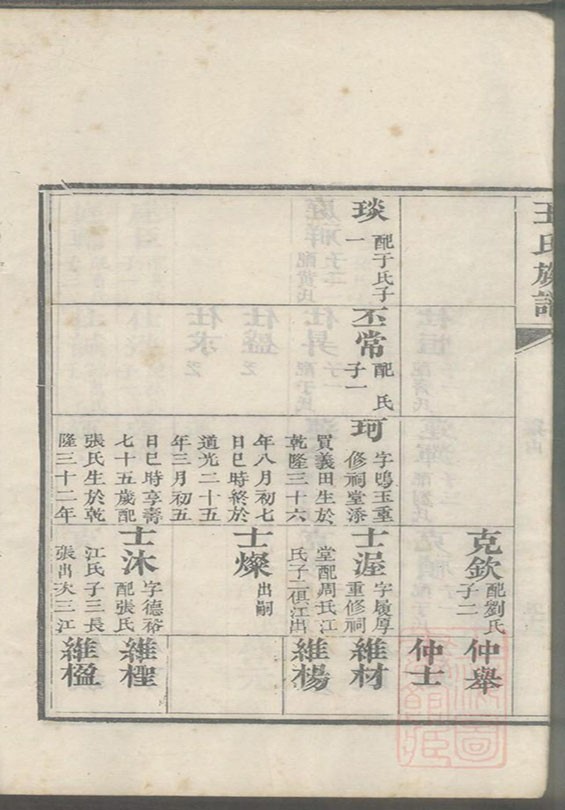 王氏族譜
克欽 配劉氏
子二
仲舉
仲士
琰 配于氏子
一
丕常 配 氏
子一
珂 字鳴玉重
修祠堂添
置義田生於
乾隆三十六
年八月初七
日巳時終於
道光二十五
年三月初五
日巳時享壽
七十五歲配
張氏生於乾
隆三十二年
士渥 字履厚
重修祠
堂配周氏江
氏子二俱江出
維材
維楊
士燦 出嗣
士沐 字德裕
配張氏
江氏子三長
張出次三江
維檉
維楹